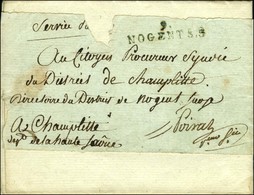 Service
9.
NOGENT S.S
Au Citoyen Procureur Syndic
du District de Champlitte
Directoire du District de Nogent
A Champlitte
dept. de la haute Saône